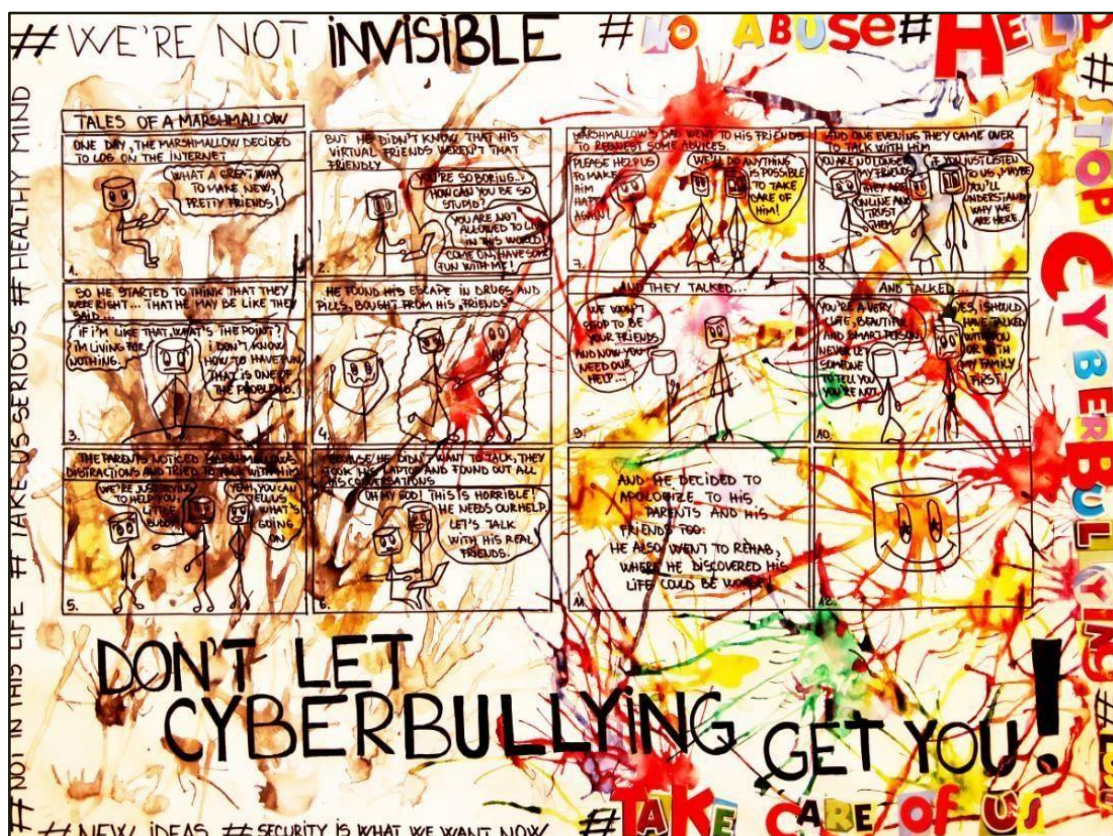 # WE'RE NOT INVISIBLE
# NO ABUSE
# HELP
# STOP CYBERBULLYING
# NOT IN THIS LIFE # TAKE US SERIOUS # HEALTHY MIND
TALES OF A MARSHMALLOW
ONE DAY, THE MARSHMALLOW DECIDED
TO LOG ON THE INTERNET
WHAT A GREAT WAY
TO MAKE NEW,
PRETTY FRIENDS!
1.
BUT HE DIDN'T KNOW THAT HIS
VIRTUAL FRIENDS WEREN'T THAT
FRIENDLY
YOU'RE SO BORING...
HOW CAN YOU BE SO
STUPID?
YOU ARE NOT
ALLOWED TO LIVE
IN THIS WORLD
COME ON, HAVE SOME
FUN WITH ME!
2.
SO HE STARTED TO THINK THAT THEY
WERE RIGHT... THAT HE MAY BE LIKE THEY
SAID...
IF I'M LIKE THAT, WHAT'S THE POINT?
I'M LIVING FOR
NOTHING.
I DON'T KNOW
HOW TO HAVE FUN
THAT IS ONE OF
THE PROBLEMS.
3.
HE FOUND HIS ESCAPE IN DRUGS AND
PILLS, BOUGHT FROM HIS "FRIENDS"
4.
THE PARENTS NOTICED MARSHMALLOW'S
DISTRACTIONS AND TRIED TO TALK WITH HIM
WE'RE JUST TRYING
TO HELP YOU,
LITTLE
BUDDY!
YEAH, YOU CAN
TELL US
WHAT'S
GOING
ON
5.
BECAUSE HE DIDN'T WANT TO TALK, THEY
TOOK HIS LAPTOP AND FOUND OUT ALL
HIS CONVERSATIONS
OH MY GOD! THIS IS HORRIBLE!
HE NEEDS OUR HELP.
LET'S TALK
WITH HIS REAL
FRIENDS.
6.
MARSHMALLOW'S DAD WENT TO HIS FRIENDS
TO REQUEST SOME ADVICES.
PLEASE HELP US
TO MAKE
HIM
HAPPY
AGAIN!
WE'LL DO ANYTHING
IS POSSIBLE
TO TAKE
CARE OF
HIM!
7.
AND ONE EVENING THEY CAME OVER
TO TALK WITH HIM
YOU ARE NO LONGER
MY FRIENDS
THEY ARE
ONLINE AND
I TRUST
THEM.
IF YOU JUST LISTEN
TO US, MAYBE
YOU'LL
UNDERSTAND
WHY WE
ARE HERE.
8.
AND THEY TALKED...
WE WON'T
STOP TO BE
YOUR FRIENDS
AND NOW YOU
NEED OUR
HELP...
9.
AND TALKED...
YOU'RE A VERY
CUTE, BEAUTIFUL
AND SMART PERSON.
NEVER LET
SOMEONE
TO TELL YOU
YOU'RE NOT.
YES, I SHOULD
HAVE TALKED
WITH YOU
OR WITH
MY FAMILY
FIRST!
10.
AND HE DECIDED TO
APOLOGIZE TO HIS
PARENTS AND HIS
FRIENDS TOO.
HE ALSO WENT TO REHAB,
WHERE HE DISCOVERED HIS
LIFE COULD BE WORSE!
11.
12.
DON'T LET
CYBERBULLYING
GET YOU!
# NEW IDEAS # SECURITY IS WHAT WE WANT NOW
# TAKE CARE OF US